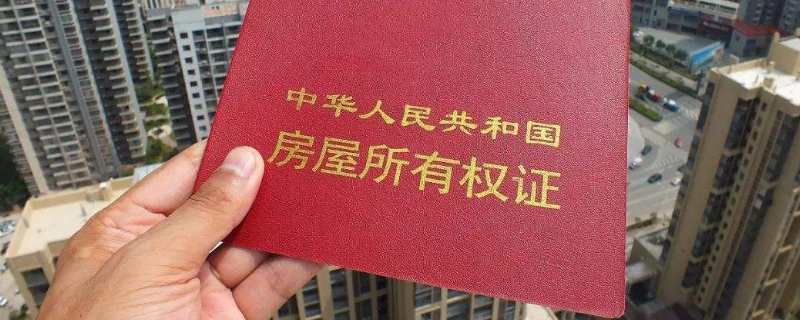 中华人民共和国
房屋所有权证